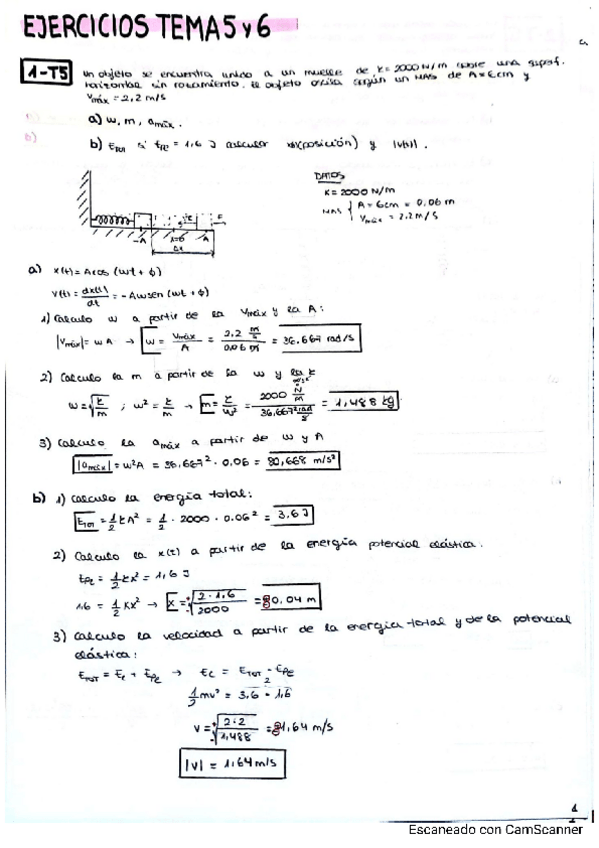 EJERCICIOS TEMA 5 y 6
1-T5 Un objeto se encuentra unido a un muelle de K = 2000 N/m sobre una superf.
horizontal sin rozamiento. El objeto oscila según un MAS de A = 6cm y
Vmáx = 2,2 m/s
a) w, m, amáx.
b) ETOT si EPe = 1,6 J calcular x(posición) y |v(t)|.
DATOS
K = 2000 N/m
MAS { A = 6cm = 0,06 m
Vmáx = 2.2 m/s
-A x=0 A
Δx
a) x(t) = A cos (wt + ϕ)
v(t) = dx(t)/dt = -Aw sen (wt + ϕ)
1) Calculo w a partir de la Vmáx y la A:
|Vmáx| = w A → w = Vmáx/A = 2.2 m/s / 0.06 m = 36.667 rad/s
2) Calculo la m a partir de la w y la K
w = √K/m ; w² = K/m → m = K/w² = 2000 N/m / 36,667² rad/s = 1,488 kg
3) Calculo la amáx a partir de w y A
|amáx| = w²A = 36,667² · 0.06 = 80,668 m/s²
b) 1) Calculo la energía total:
ETOT = 1/2 KA² = 1/2 · 2000 · 0.06² = 3.6 J
2) Calculo la x(t) a partir de la energía potencial elástica.
EPe = 1/2 Kx² = 1,6 J
1,6 = 1/2 Kx² → x = ±√2·1,6/2000 = 0.04 m
3) Calculo la velocidad a partir de la energía total y de la potencial
elástica:
ETOT = Ec + EPe → Ec = ETOT - EPe
1/2 mv² = 3,6 - 1,6
v = ±√2·2/1,488 = 1,64 m/s
|v| = 1,64 m/s
1
Escaneado con CamScanner